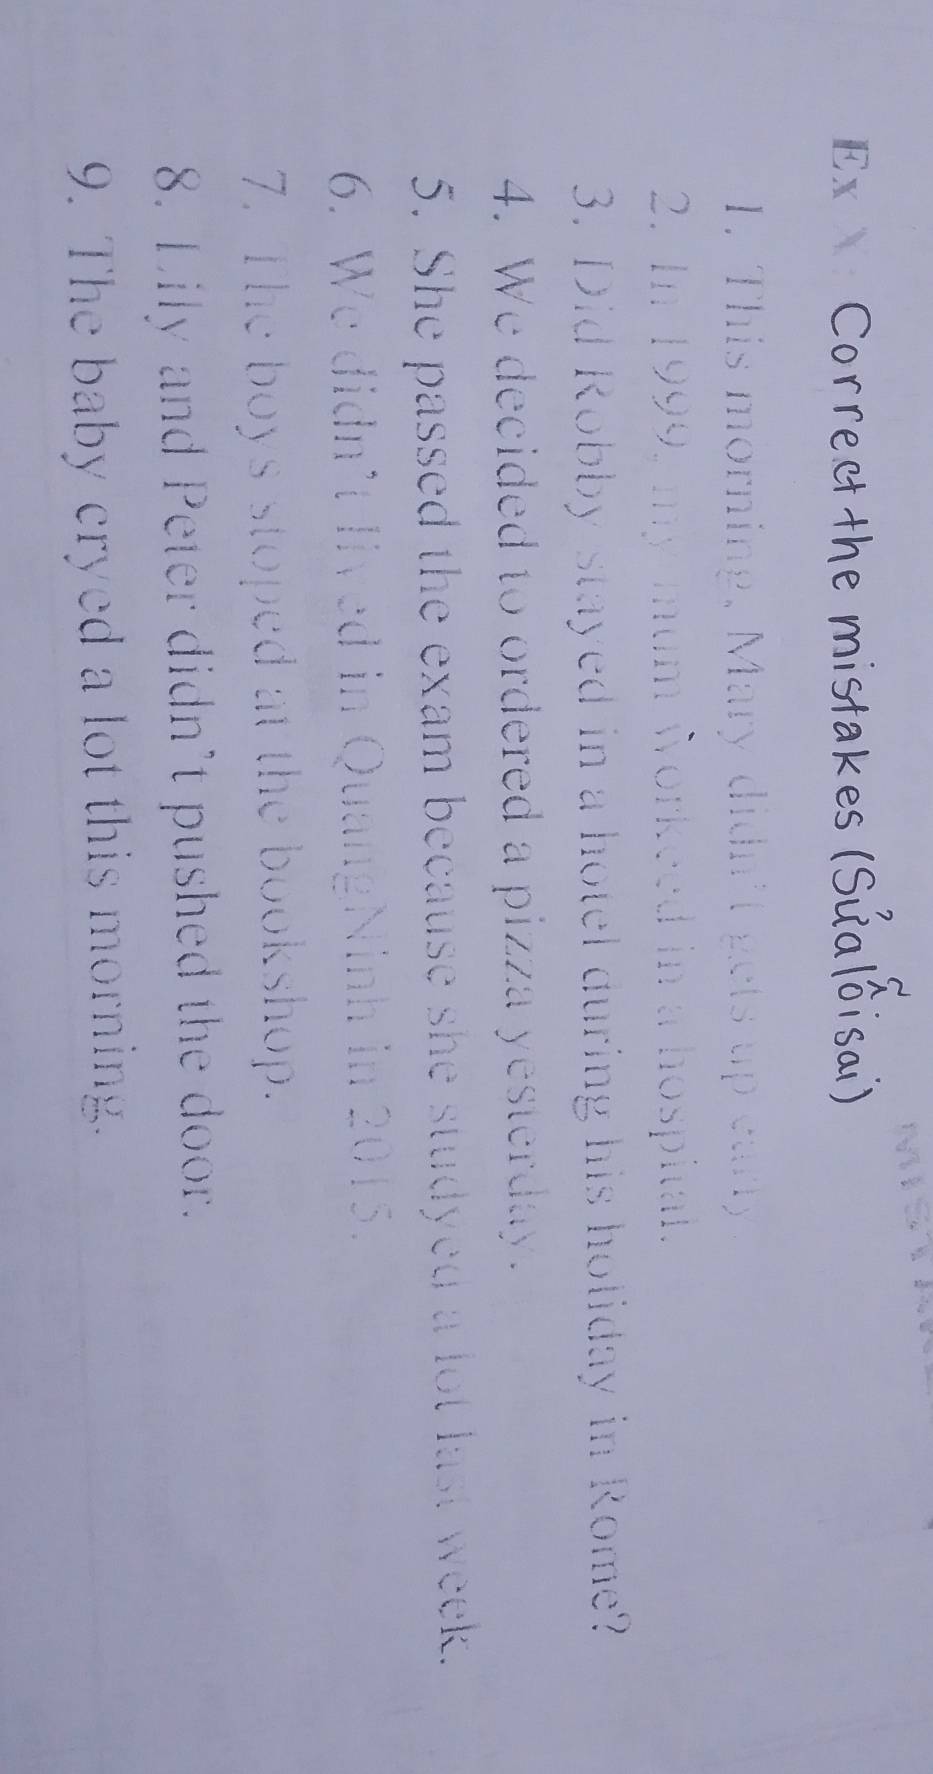 Ex X: Correct the mistakes (Sửa lỗi sai)
1. This morning, Mary didn't gets up early
2. In 1999, my mum worked in a hospital.
3. Did Robby stayed in a hotel during his holiday in Rome?
4. We decided to ordered a pizza yesterday.
5. She passed the exam because she studyed a lot last week.
6. We didn't lived in QuangNinh in 2015.
7. The boys stoped at the bookshop.
8. Lily and Peter didn't pushed the door.
9. The baby cryed a lot this morning.